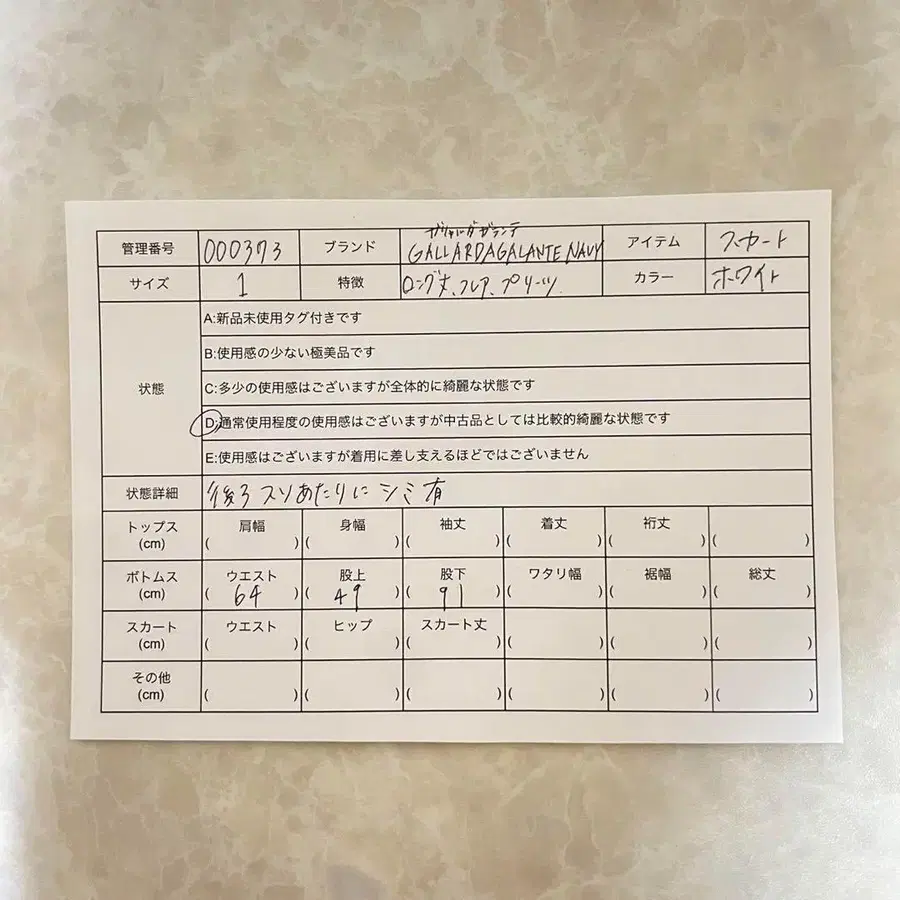 ガリャルダガランテ
管理番号 000373 ブランド GALLARDAGALANTE NAVY アイテム スカート
サイズ 1 特徴 ロング丈、フレア、プリーツ カラー ホワイト
A:新品未使用タグ付きです
B:使用感の少ない極美品です
状態 C:多少の使用感はございますが全体的に綺麗な状態です
D:通常使用程度の使用感はございますが中古品としては比較的綺麗な状態です
E:使用感はございますが着用に差し支えるほどではございません
状態詳細 後ろスソあたりにシミ有
トップス 肩幅 身幅 袖丈 着丈 裄丈
(cm) ( ) ( ) ( ) ( ) ( ) ( )
ボトムス ウエスト 股上 股下 ワタリ幅 裾幅 総丈
(cm) ( 64 ) ( 49 ) ( 91 ) ( ) ( ) ( )
スカート ウエスト ヒップ スカート丈
(cm) ( ) ( ) ( ) ( ) ( ) ( )
その他
(cm) ( ) ( ) ( ) ( ) ( ) ( )